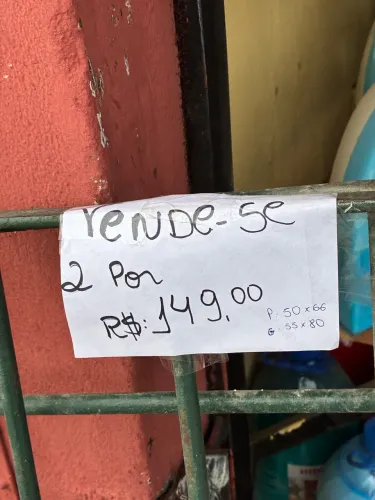 VENDE-SE
2 Por
R$: 149,00
P: 50x66
G: 55x80